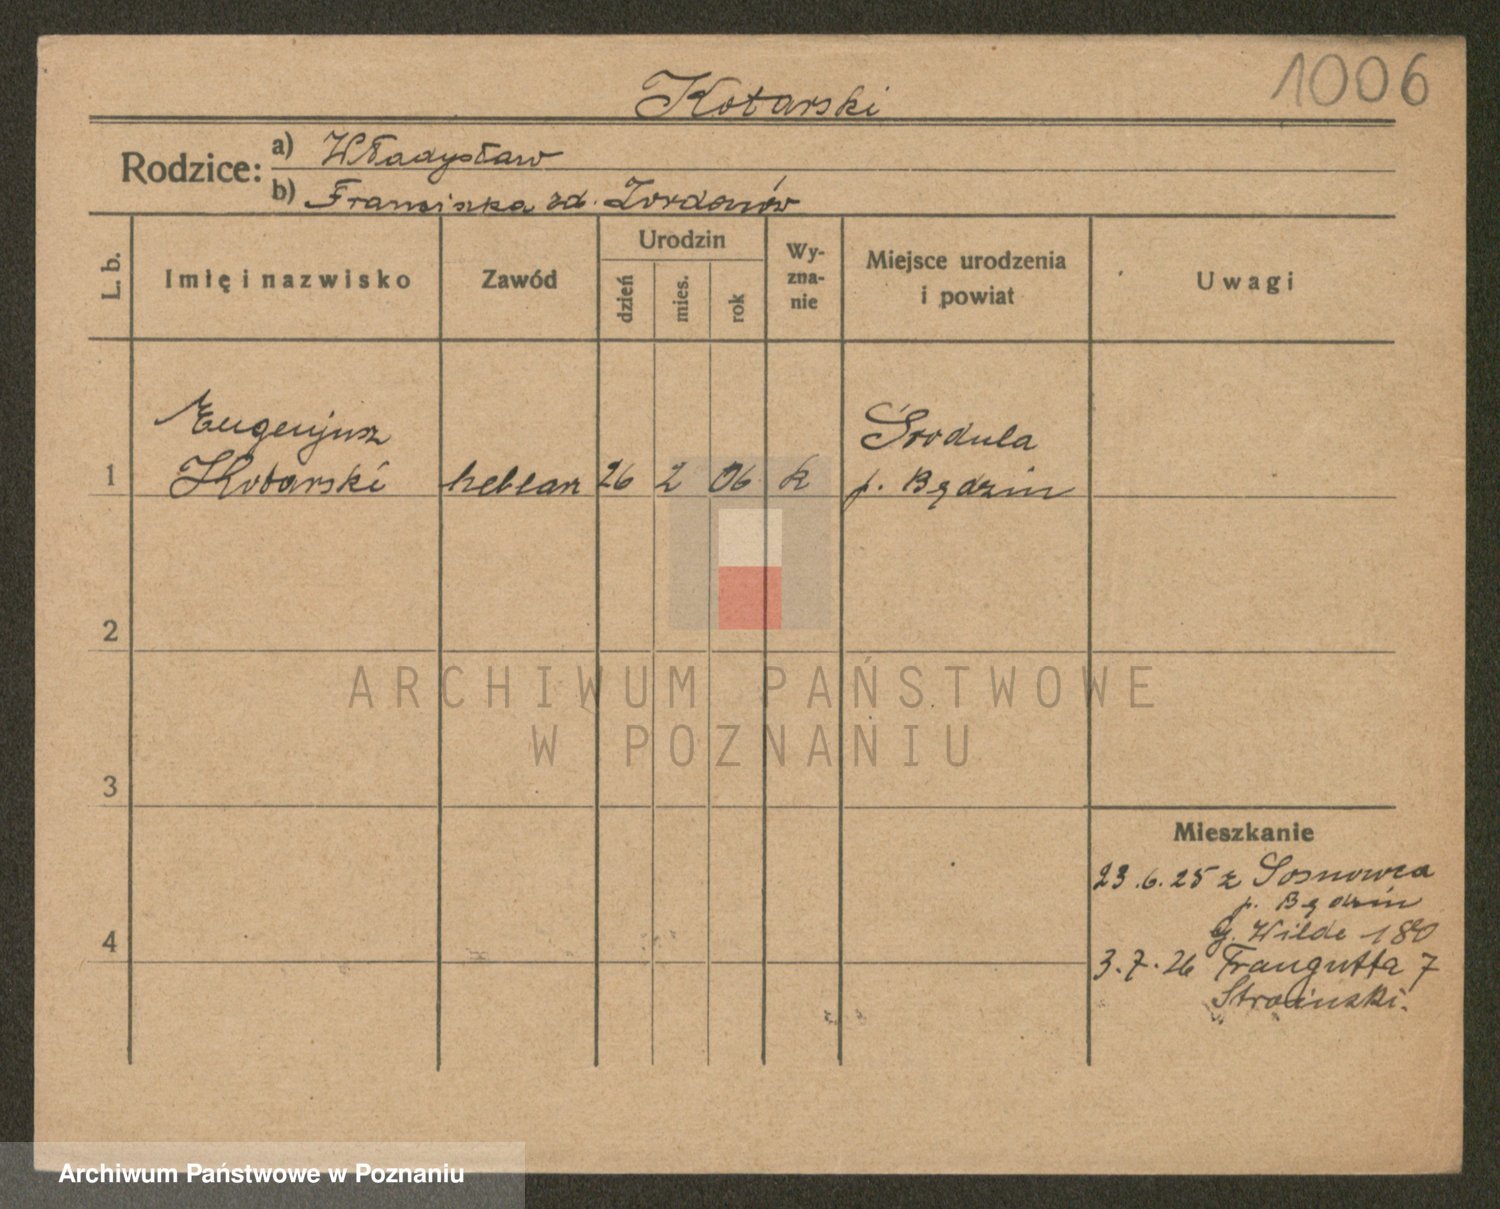 1006
Kotarski
Rodzice: a) Władysław
b) Franciszka zd. Jordanów
L. b.
Imię i nazwisko
Zawód
Urodzin
dzień
mies.
rok
Wy-
zna-
nie
Miejsce urodzenia
i powiat
Uwagi
Eugenjusz
Środula
1 Kotarski heblarz 26 2 06 k p. Będzin
2
3
4
Mieszkanie
23.6.25 z Sosnowca
p. Będzin
G. Wilde 180
3.7.26 Traugutta 7
ARCHIWUM PAŃSTWOWE
W POZNANIU
Archiwum Państwowe w Poznaniu